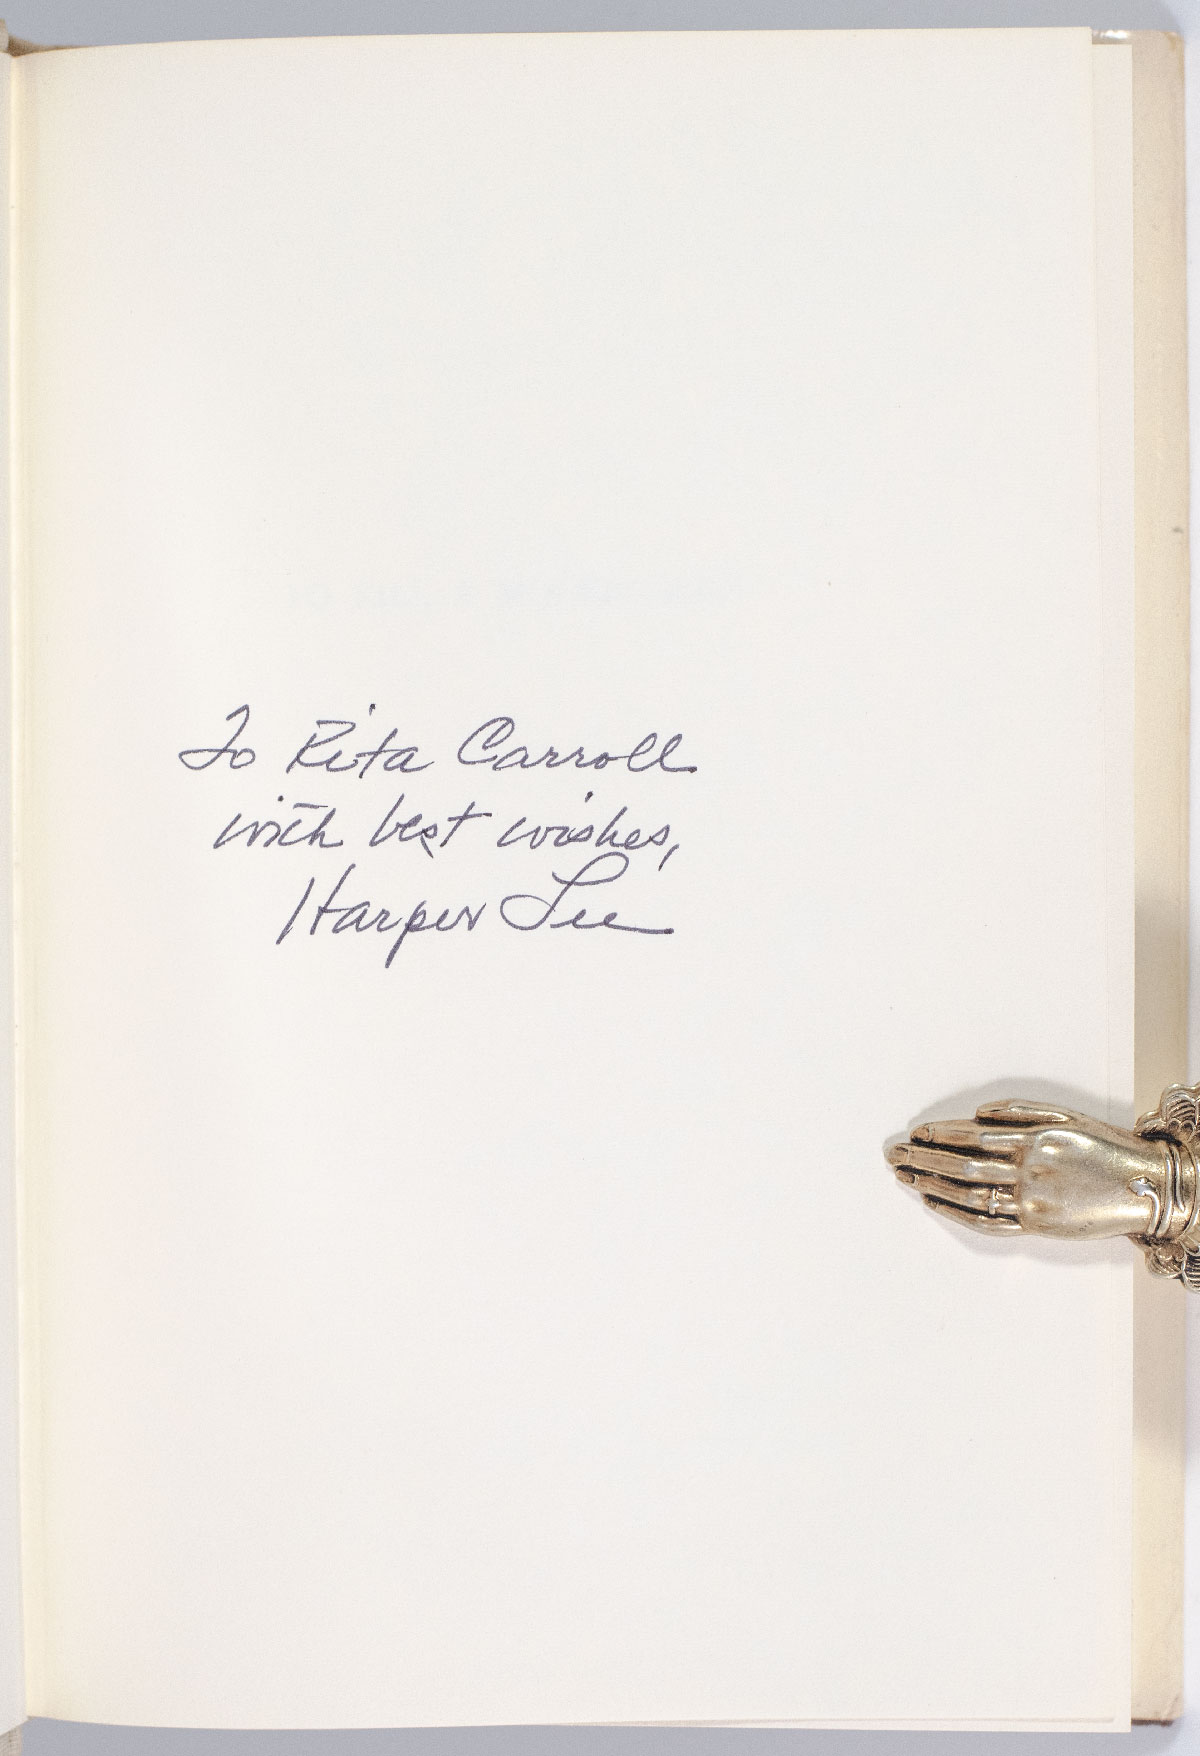 To Rita Carroll
with best wishes,
Harper Lee